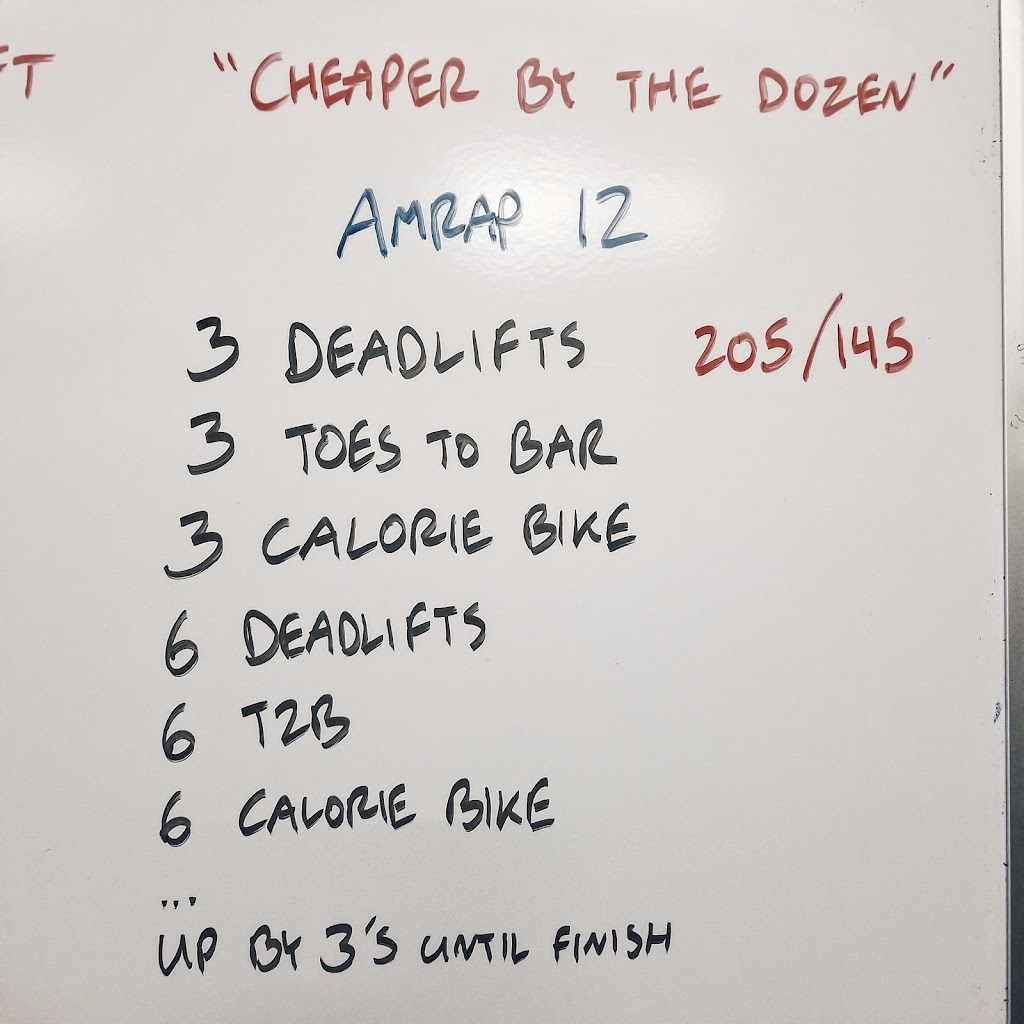 FT
"CHEAPER BY THE DOZEN"
AMRAP 12
3 DEADLIFTS 205/145
3 TOES TO BAR
3 CALORIE BIKE
6 DEADLIFTS
6 T2B
6 CALORIE BIKE
...
UP BY 3'S UNTIL FINISH